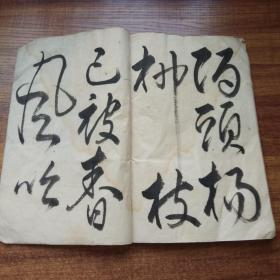 陌頭楊
柳枝
已被春
風吹